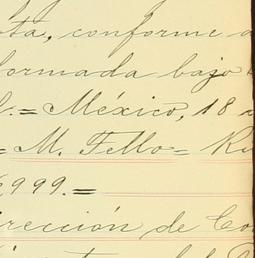 ota, conforme a
formada bajo
.= México, 18
= M. Tello = R
999. =
irección de Co